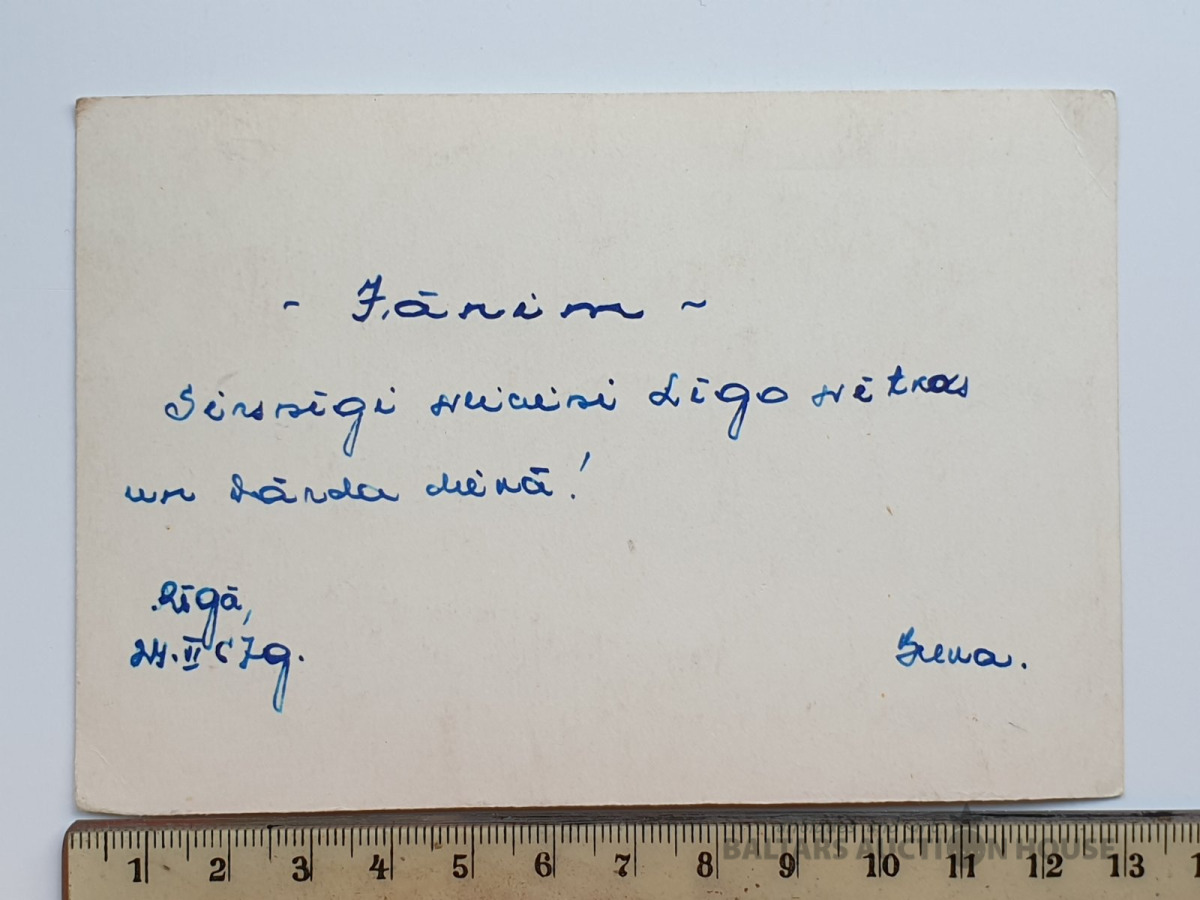 - Jānim -
Sirsnīgi sveicieni Līgo svētkos
un vārda dienā!
Rīgā,
24.VI 67g.
Irena.
BALTARS AUCTION HOUSE
1 2 3 4 5 6 7 8 9 10 11 12 13 1